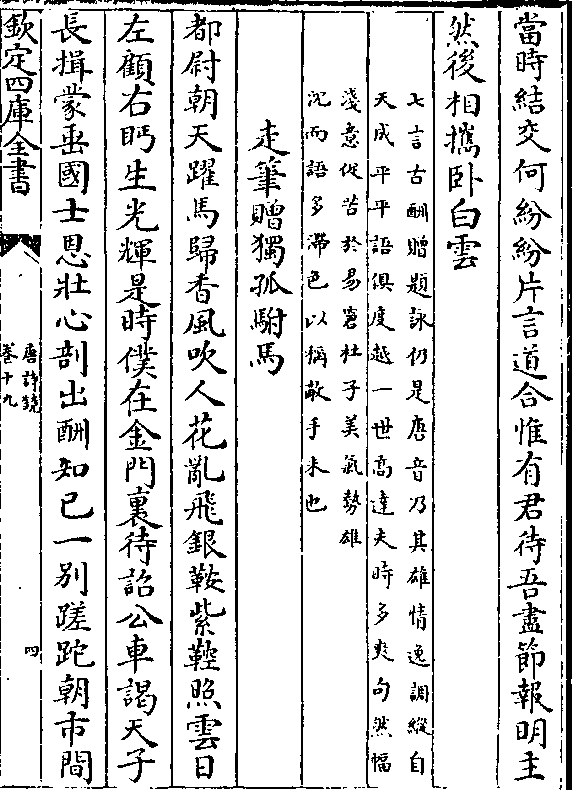 當時結交何紛紛片言道合惟有君待吾盡節報明主
然後相攜卧白雲
七言古酬贈題詠仍是唐音乃其雄情逸調縱自
天成平平語俱度越一世高達夫時多爽句然幅
淺意促苦於易窘杜子美氣勢雄
沉而語多滯色以稱敵手未也
走筆贈獨孤駙馬
都尉朝天躍馬歸香風吹人花亂飛銀鞍紫鞚照雲日
左顧右眄生光輝是時僕在金門裏待詔公車謁天子
長揖蒙垂國士恩壯心剖出酬知已一別蹉跎朝市間
欽定四庫全書
唐詩鏡
卷十九
四